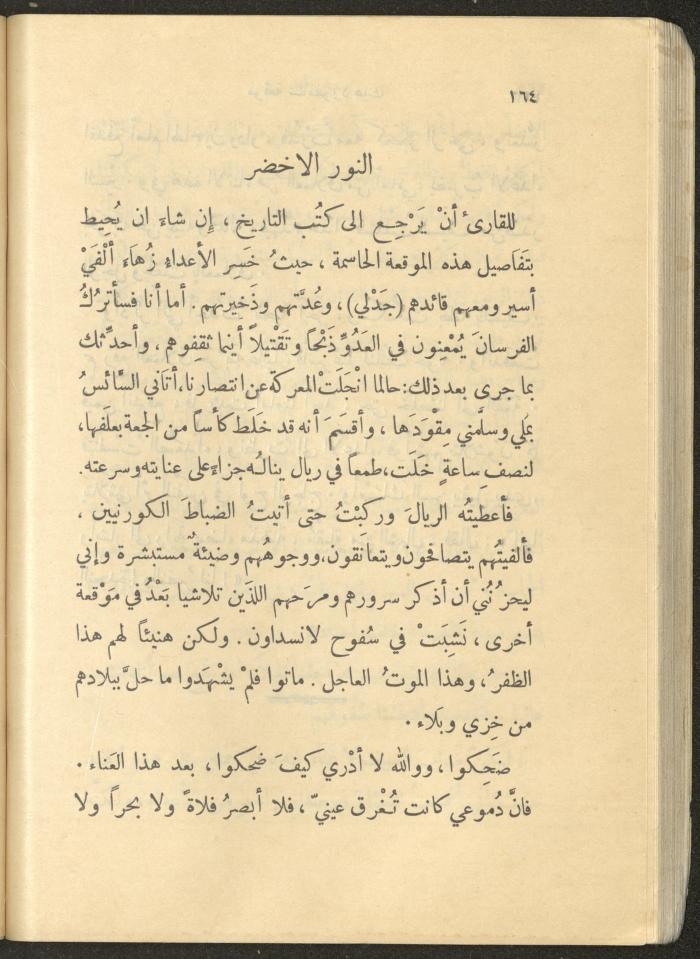 ١٦٤
النور الاخضر
للقارئ أنْ يَرْجِع الى كتُب التاريخ ، إن شاءَ ان يُحِيط
بتَفَاصيل هذه الموقعة الحاسمة ، حيثُ خَسِر الأعداءُ زُهَاءَ ألْفَيْ
أسير ومعهم قائدهم (جَدْلي)، وعُدَّتهم وذَخِيرتهم . أما أنا فسأترُكُ
الفرسانَ يُمْعِنون في العَدُوِّ ذَبْحاً وتَقْتيلاً أينما ثقِفوهم ، وأحدِّثك
بما جرى بعد ذلك: حالما انْجَلَتْ المعركة عن انتصارنا، أتَاني السَّائسُ
بمْلي وسلَّمني مِقْوَدَها ، وأقسَمَ أنه قد خَلَط كأساً من الجعة بعلَفها،
لنصفِ ساعةٍ خلَت، طمعاً في ريال ينالُه جزاءً على عنايته وسرعته.
فأعطيتُه الريالَ وركبْتُ حتى أتيتُ الضباطَ الكورنيين ،
فألفيتُهم يتصافحون ويتعانقون، ووجوهُهم وضيئةٌ مستبشرة وإني
ليحزُنُني أن أذكر سرورهم ومرَحهم اللذَين تلاشيا بَعْدُ في مَوْقعة
أخرى ، نَشِبَتْ في سُفوح لانسداون . ولكن هنيئاً لهم هذا
الظفرُ، وهذا الموتُ العاجل . ماتوا فلمْ يشْهَدوا ما حلَّ ببلادهم
من خِزي وبَلاء .
ضَحِكوا ، ووالله لا أدْري كيفَ ضحكوا ، بعد هذا العَناء .
فانَّ دُموعي كانت تُغْرق عينيّ ، فلا أبصرُ فلاةً ولا بحراً ولا